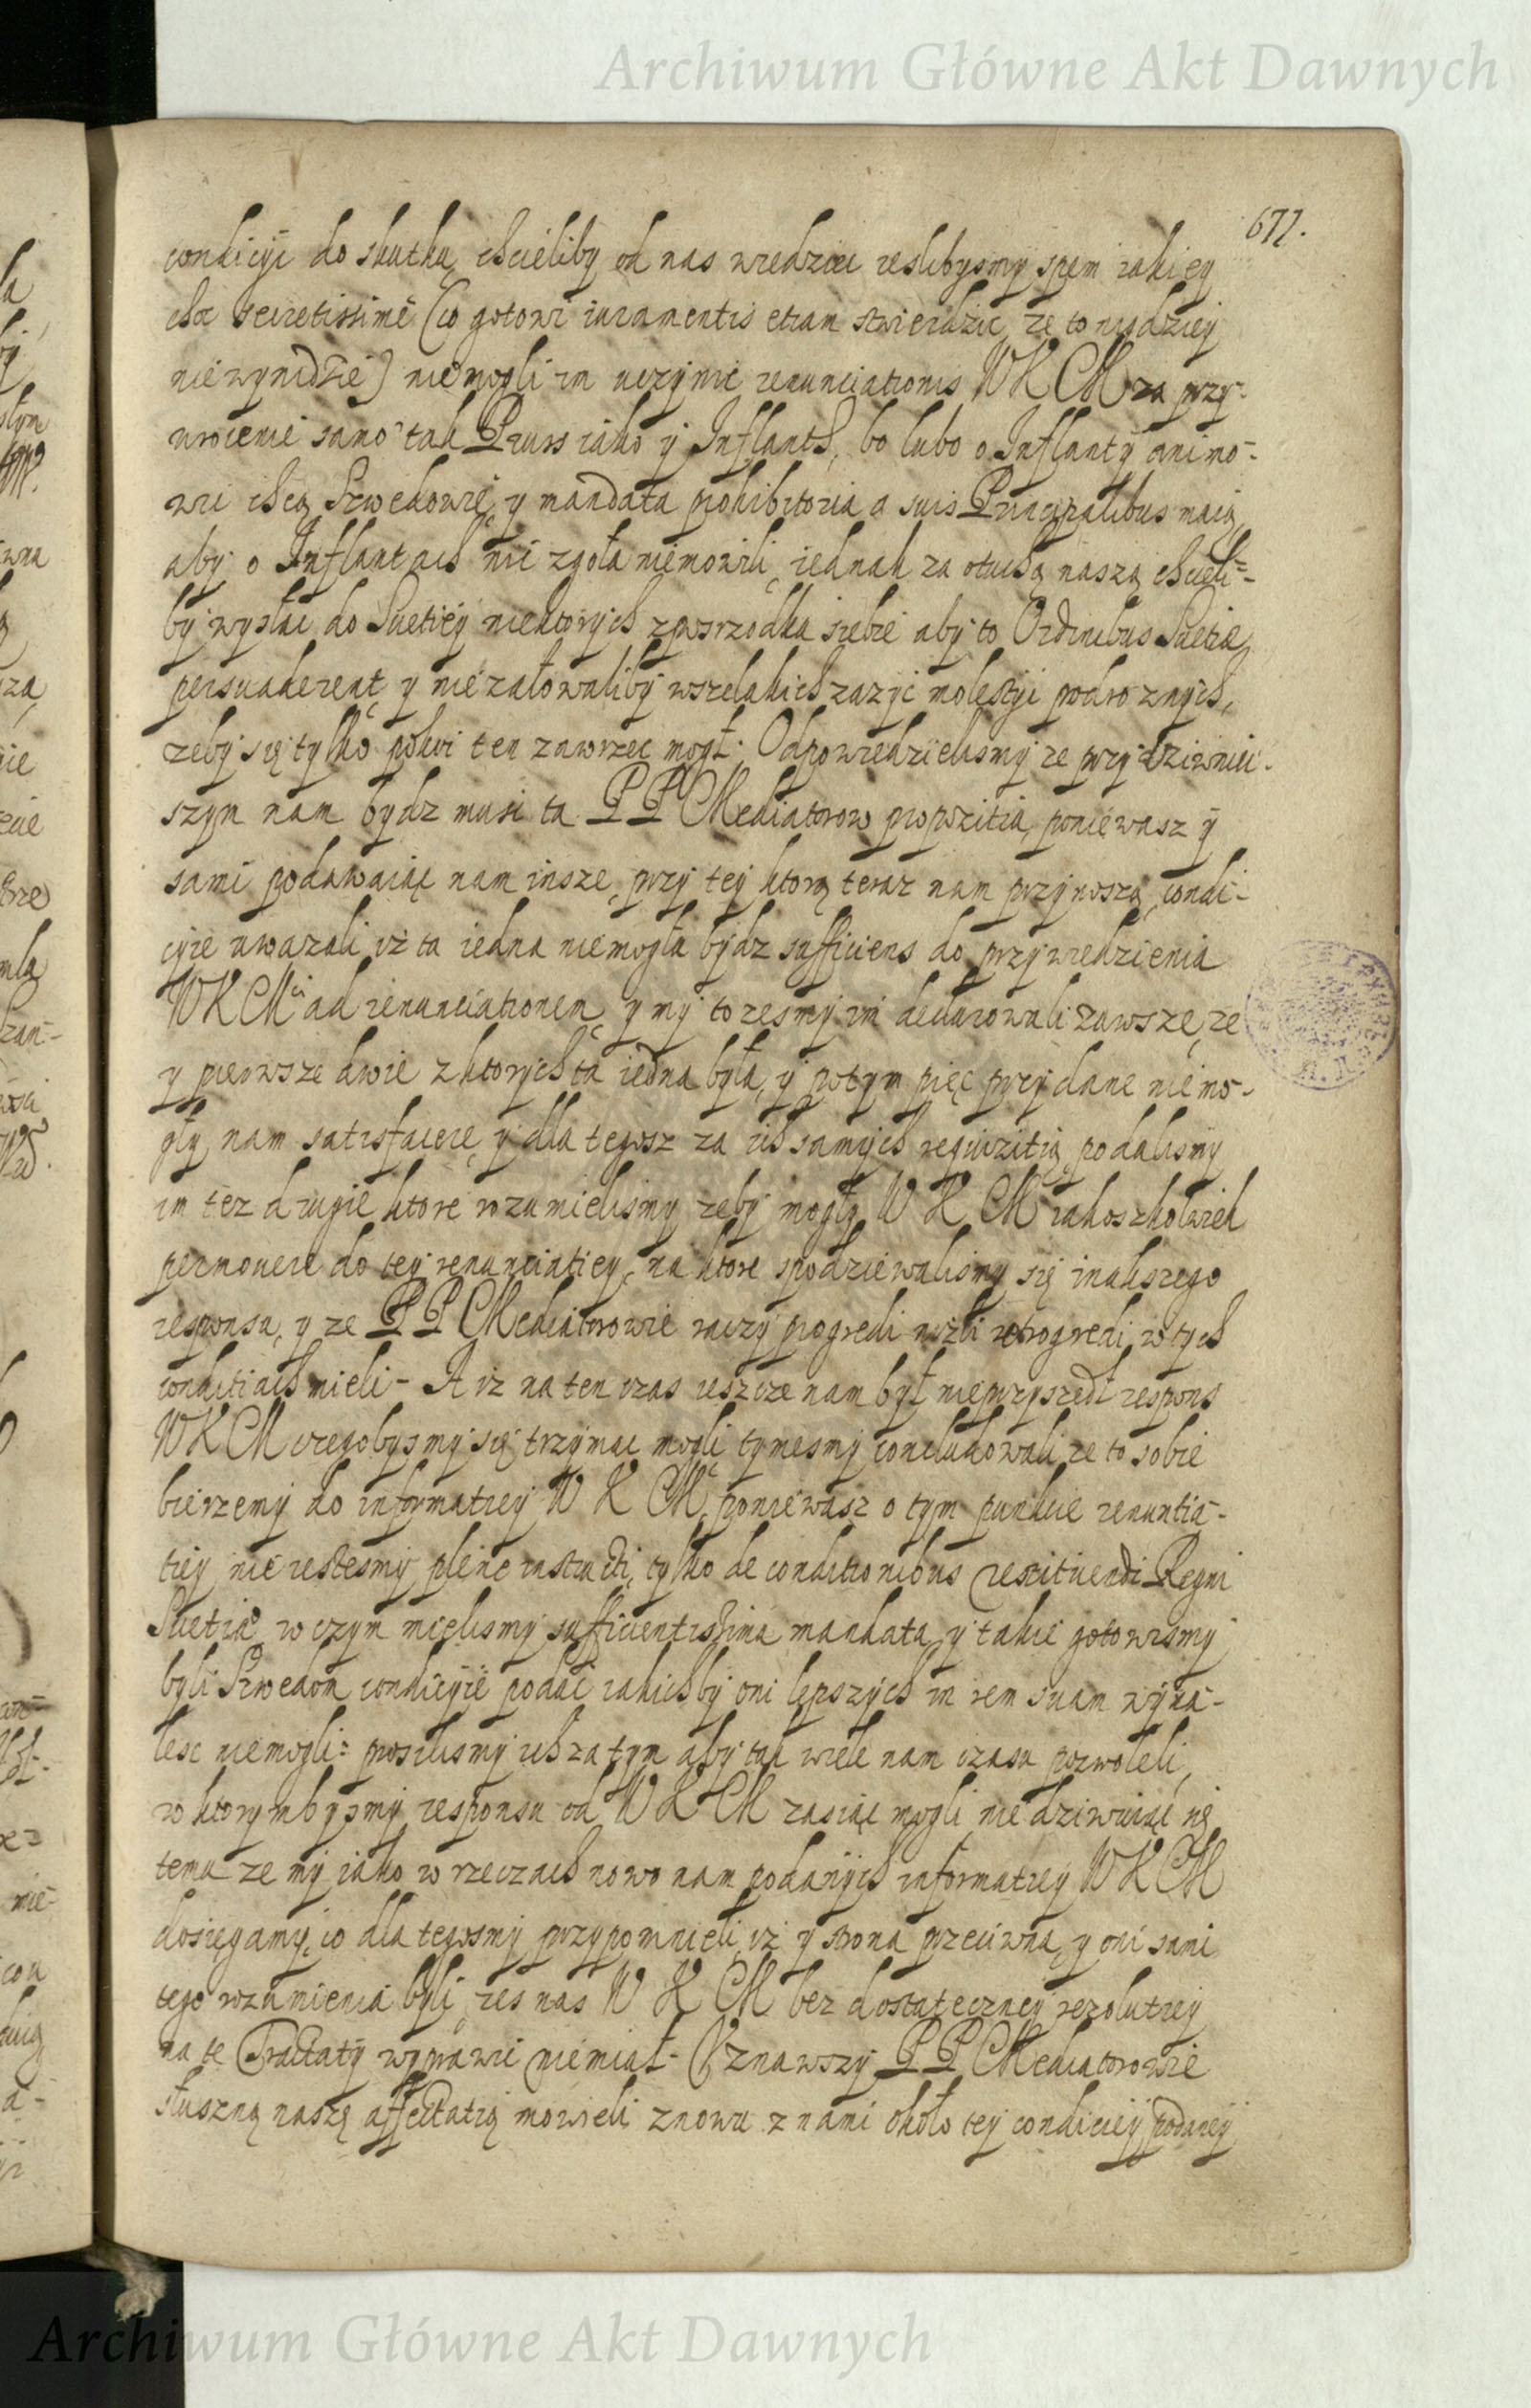 Archiwum Główne Akt Dawnych
677.
condicÿi do skutku, chcieliby od nas wiedziec ieslibysmy spem iakiey
choc secretissime (co gotowi iuramentis etiam stwierdzic, ze to nigdziey
niewynidzie) niemogli im uczynic renunciationis WKCM za przy-
wrocenie samo tak Pruss iako ÿ Inflanth, bo lubo o Inflantÿ ani mo-
wic chcą Szwedowie, y mandata prohibitoria a suis Principalibus maią,
aby o Inflantach nic zgoła niemowili, iednak za otuchą naszą chcieli-
by wysłac do Suetiey niektorych zposrzodka siebie aby to Ordinibus Suetiæ
persuaderent, y nie załowaliby wszelakich zazyc molestyi podroznych,
zeby się tylko pokoi ten zawrzec mogł. Odpowiedzielismy ze przÿdziwniei-
szym nam bydz musi ta PP Mediatorow propozitia, poniewasz ÿ
sami podawaiąc nam insze, przy tey ktorą teraz nam przynoszą, condi-
cyie uwazali, iż ta iedna niemogła bydz sufficiens do przywiedzienia
WKMci ad renunciationem, y my tozesmy im declarowali zawsze, ze
y pierwsze dwie z ktorych ta iedna była, ÿ potym pięc przydane niemo-
gły nam satisfacere, y dla tegosz za ich samych requizitią podalismy
im tez drugie ktore rozumielismy zeby mogły WKCM iakoszkolwiek
permouere do tey renunciatiey, na ktore spodziewalismy się inakszego
responsu, y ze PP Mediatorowie raczy progredi nizli retrogredi w tych
conditiach mieli - A iz na ten czas ieszcze nam był nieprzyszedł respons
WKCM czegobysmy się trzymac mogli, tymesmy concludowali, ze to sobie
bierzemy do informatiey WKCM, poniewasz o tym punkcie renuntia-
tiey nie iestesmy plene instructi, tylko de conditionibus restituendi Regni
Suetiæ w czym mielismy sufficientissima mandata, y takie gotowismy
byli Szwedom condicyie podac iakichby oni lepszych in rem suam wyna-
lesc niemogli: prosilismy ich zatym aby tak wiele nam czasu pozwoleli,
w ktorymbysmy responsu od WKCM zasiąc mogli nie dziwuiąc się
temu ze my iako w rzeczach nowo nam podanych informatiey WKCM
dosięgamy, co dla tegosmy przypomnieli, iż y strona przeciwna, y oni sami
tego rozumienia byli, zes nas WKCM bez dostateczney rezolutiey
na te Tractaty wyprawic niemiał - Uznawszy PP Mediatorowie
słuszną naszę affectatią mowieli znowu z nami około tey condicieÿ podaneÿ
Archiwum Główne Akt Dawnych